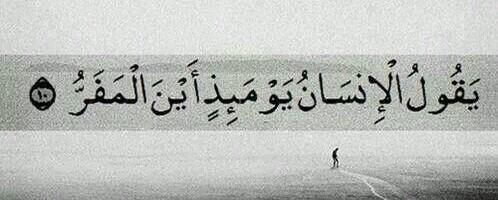 يَقُولُ الْإِنسَانُ يَوْمَئِذٍ أَيْنَ الْمَفَرُّ ۝١٠